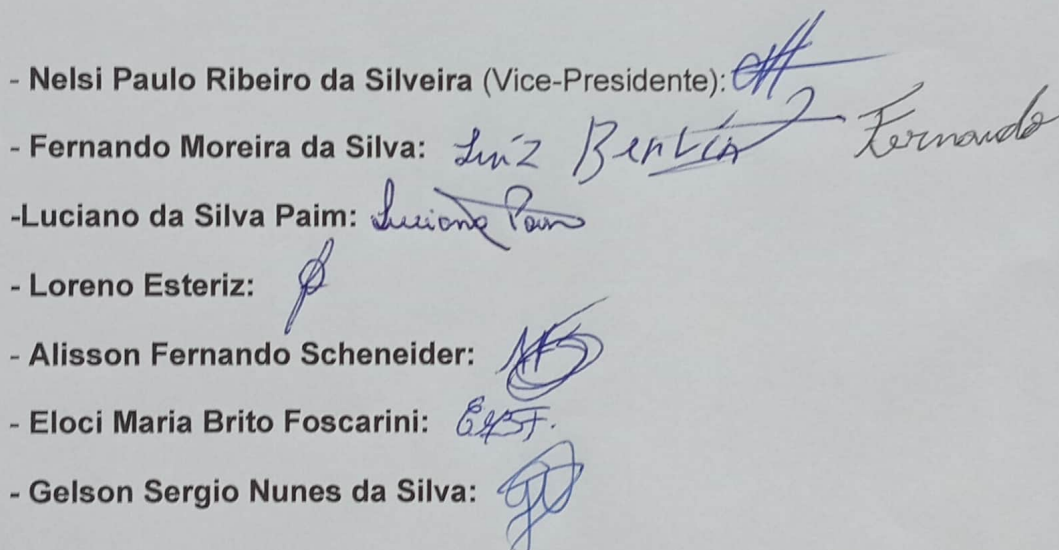 - Nelsi Paulo Ribeiro da Silveira (Vice-Presidente):
- Fernando Moreira da Silva: Luíz Bentín Fernando
-Luciano da Silva Paim: Luciano Paim
- Loreno Esteriz:
- Alisson Fernando Scheneider:
- Eloci Maria Brito Foscarini:
- Gelson Sergio Nunes da Silva: